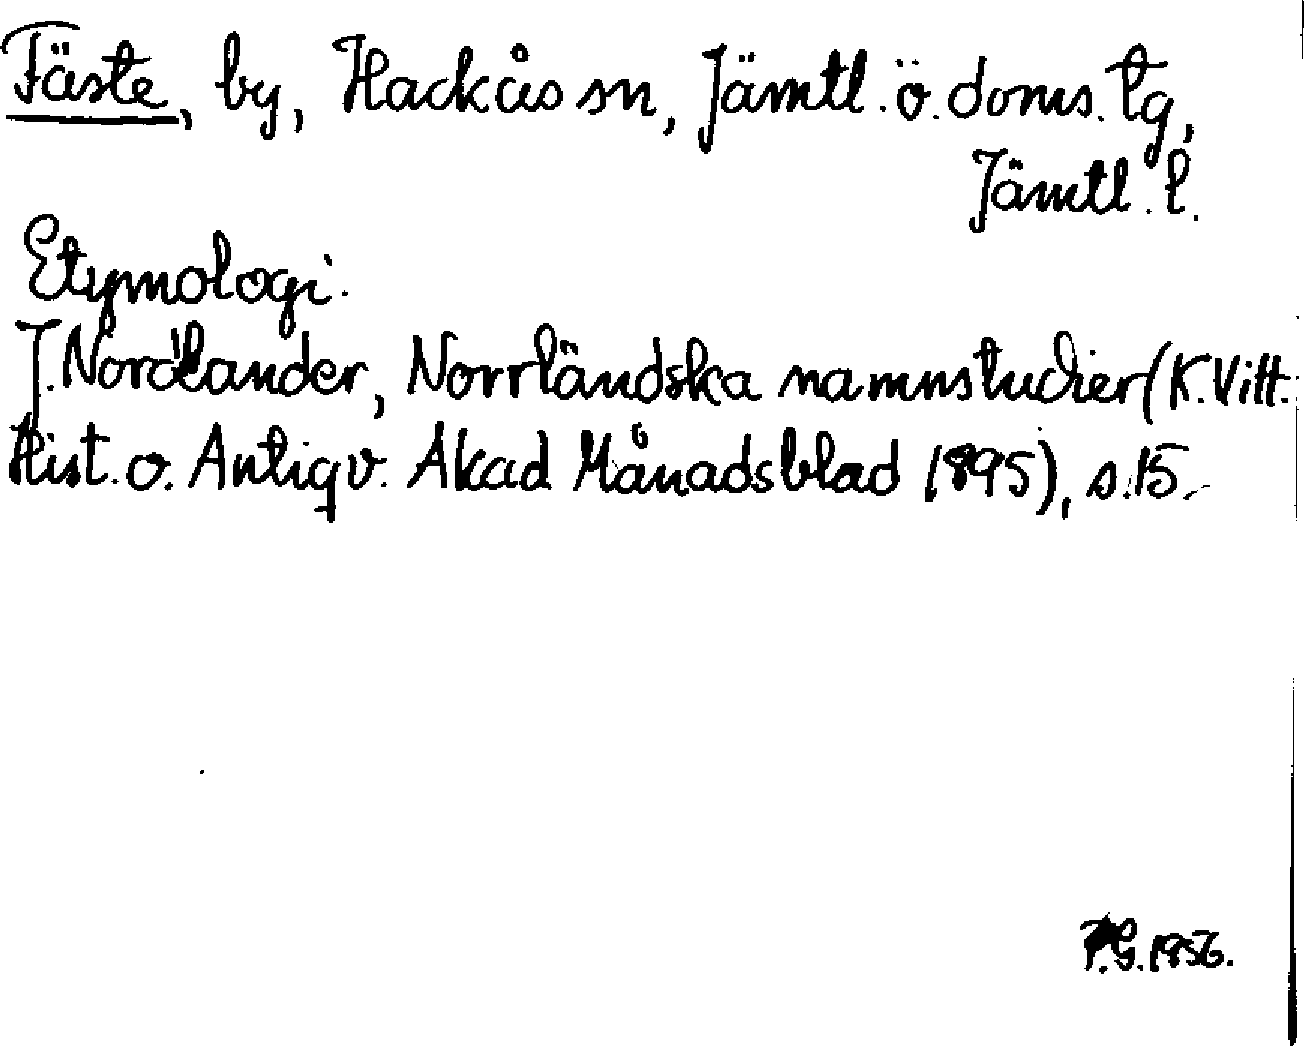 Fäste, by, Hackås sn, Jämtl. ö. doms. tg,
Jämtl. l.
Etymologi:
J. Nordlander, Norrländska namnstudier (K. Vitt.
Hist. o. Antiqv. Akad Månadsblad 1895), s. 15.
P.G. 1956.